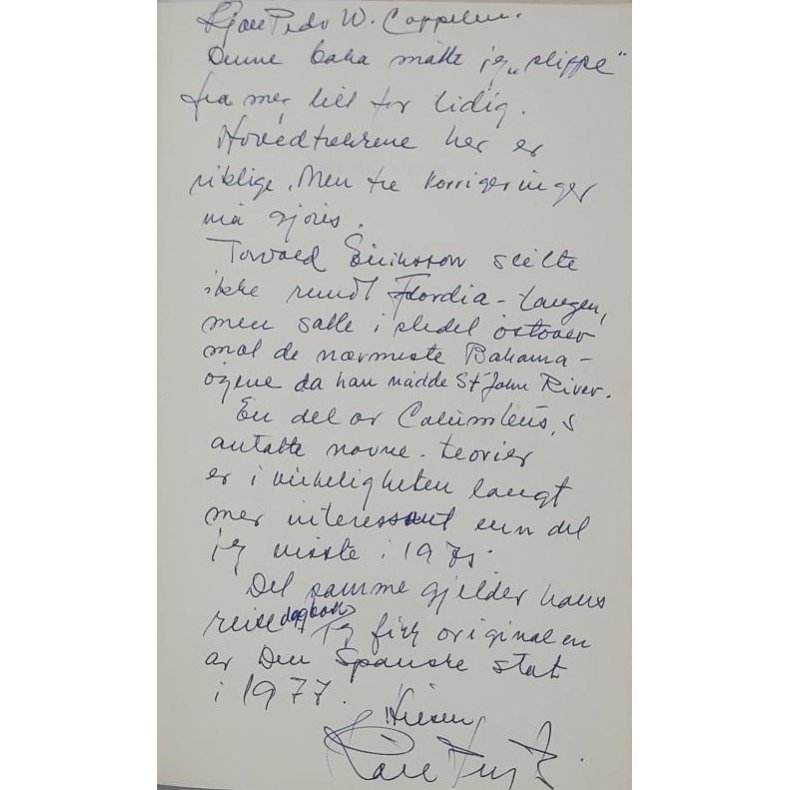 Kjære Peder W. Cappelen.
Denne boka måtte jeg „slippe"
fra meg litt for tidig.
Hovedtrekkene her er
riktige. Men tre korrigeringer
må gjøres.
Torvald Eiriksson seilte
ikke rundt Flordia-tangen,
men satte i stedet østover
mot de nærmeste Bahama-
øyene da han nådde St John River.
En del av Columbus,s
antatte navne-teorier
er i virkeligheten langt
mer interessant enn det
jeg visste i 1971.
Det samme gjelder hans
reisedagbok. Jeg fikk originalen
av Den Spanske stat
i 1977.
Hilsen
Kåre